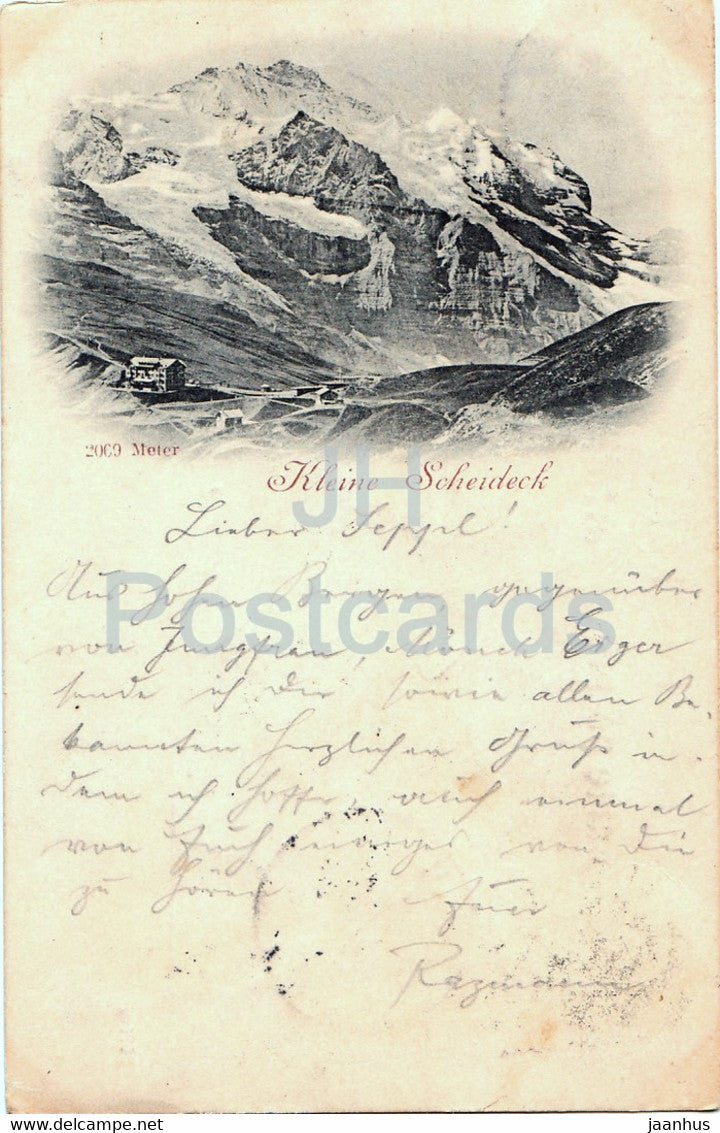 2009 Meter
Kleine Scheideck
JH
Postcards
Lieber Seppl!
Aus hohen Bergen, gegenüber
von Jungfrau, Mönch Eiger
sende ich Dir sowie allen Be-
kannten herzlichen Gruß in-
dem ich hoffe, auch einmal
von Euch von Dir
zu hören Euer
jaanhus